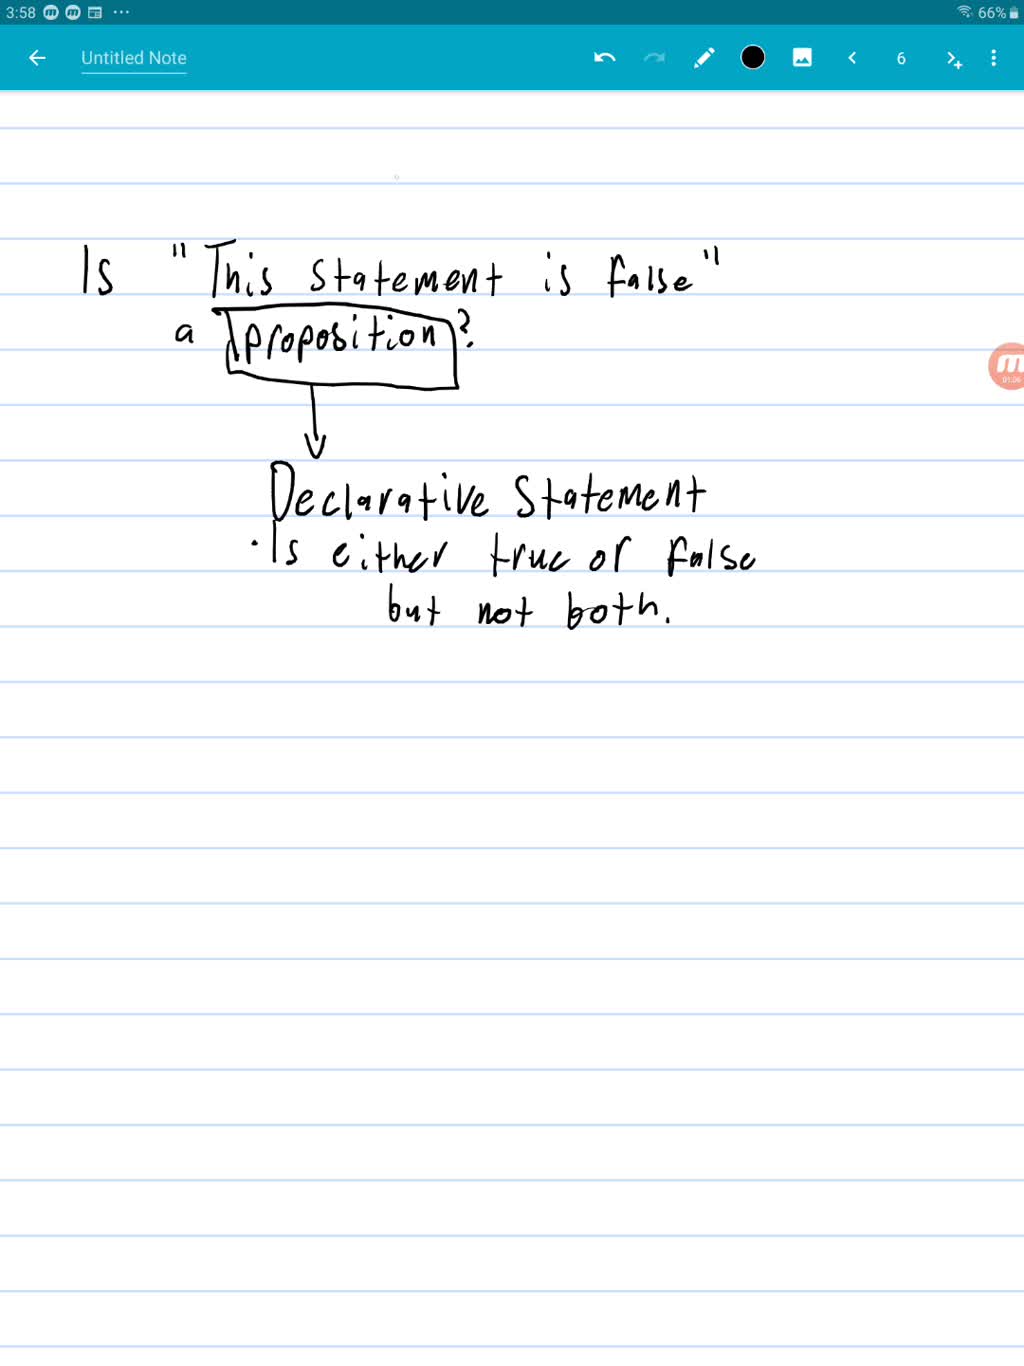 3:58 66%
Untitled Note 6
Is "This statement is false"
a proposition?
01:06
Declarative Statement
· Is either true or false
but not both.